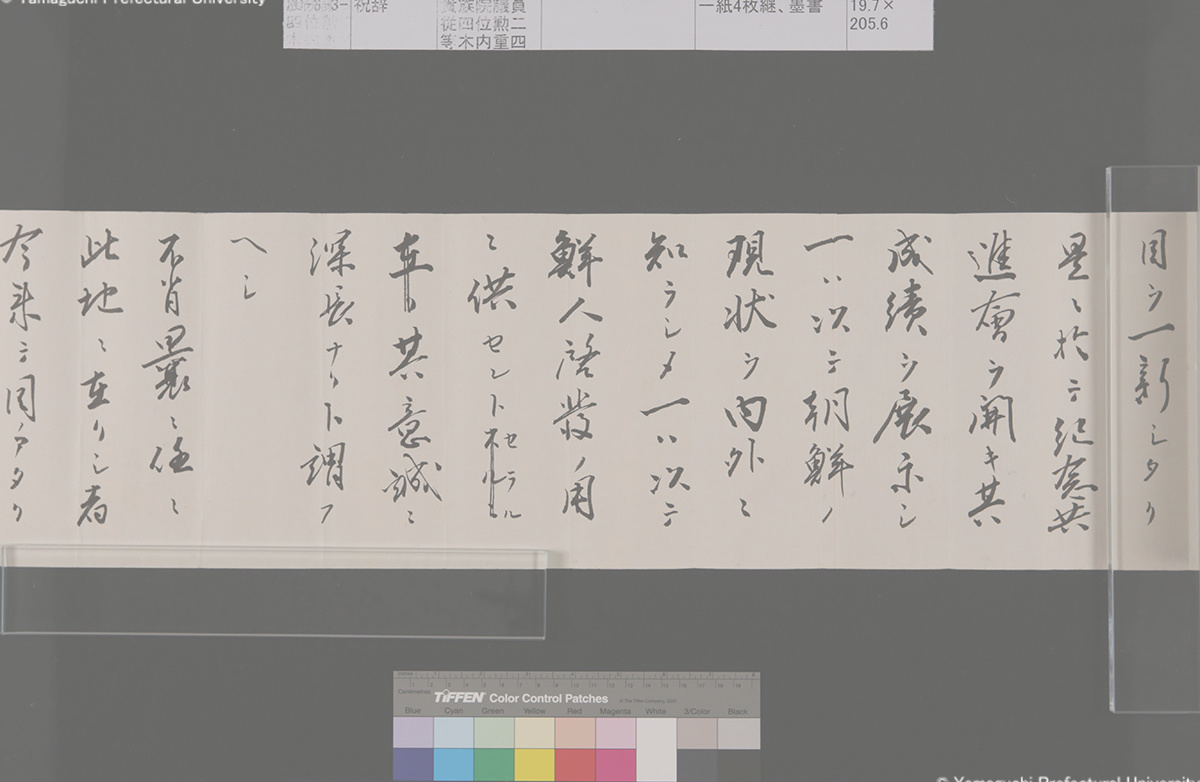 © Yamaguchi Prefectural University
祝辞
貴族院議員
従四位勲二
等木内重四
一紙4枚継、墨書
19.7×
205.6
目ヲ一新シタリ
是ニ於テ紀念共
進會ヲ開キ其
成績ヲ展示シ
一ハ以テ朝鮮ノ
現状ヲ内外ニ
知ラシメ一ハ以テ
鮮人啓發ノ用
ニ供セント
セラル
其意誠ニ
深長ナリト謂フ
ヘシ
不肖曩ニ任ニ
此地ニ在リシ者
今来テ目ノアタリ
Inches
Centimetres
TIFFEN Color Control Patches
© The Tiffen Company, 2007
Blue Cyan Green Yellow Red Magenta White 3/Color Black
© Yamaguchi Prefectural University